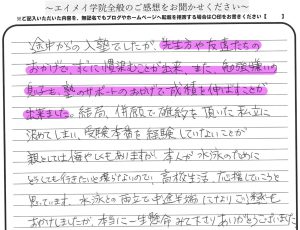 ～エイメイ学院全般のご感想をお聞かせください～
※ご記入いただいた内容を、無記名でもブログやホームページへ記載を拒否する場合は○印をお書きください【　　】
途中からの入塾でしたが、先生方や友達たちの
おかげで、すぐに慣染むことが出来、また、勉強嫌いの
息子も、塾のサポートのおかげで成績を伸ばすことが
出来ました。結局、併願で確約を頂いた私立に
決めてしまい、受験本番を経験していないことが
親としては悔やしくもありますが、本人が水泳のために
どうしても行きたいと譲らないので、高校生活、応援していこうと
思っています。水泳との両立で中途半端になりご心配を
おかけしましたが、本当に一生懸命みて下さりありがとうございました